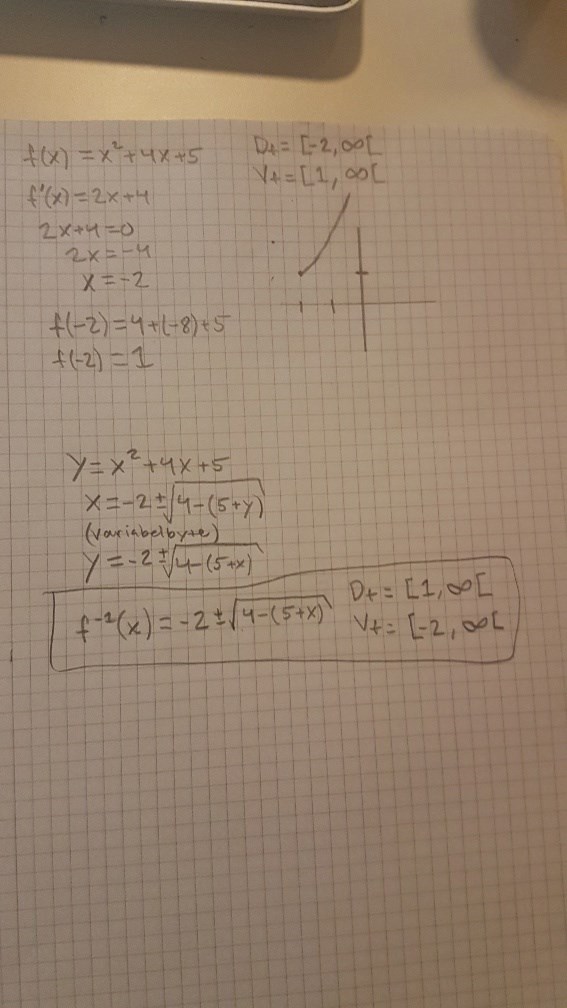 f(x) = x² + 4x + 5
f'(x) = 2x + 4
2x + 4 = 0
2x = -4
x = -2
f(-2) = 4 + (-8) + 5
f(-2) = 1
D_f = [-2, ∞[
V_f = [1, ∞[
y = x² + 4x + 5
x = -2 ± √(4-(5+y))
(variabelbyte)
y = -2 ± √(4-(5+x))
f⁻¹(x) = -2 ± √(4-(5+x))
D_f = [1, ∞[
V_f = [-2, ∞[